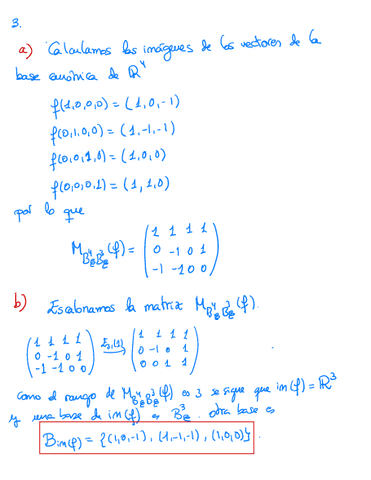 3.
a) Calculamos las imágenes de los vectores de la
base canónica de ℝ⁴
f(1,0,0,0) = (1,0,-1)
f(0,1,0,0) = (1,-1,-1)
f(0,0,1,0) = (1,0,0)
f(0,0,0,1) = (1,1,0)
por lo que
1 1 1 1
M_{B_c^4 B_c^3}(f) = 0 -1 0 1
-1 -1 0 0
b) Escalonamos la matriz M_{B_c^4 B_c^3}(f).
1 1 1 1 1 1 1 1
0 -1 0 1 E₃₁(1) → 0 -1 0 1
-1 -1 0 0 0 0 1 1
como el rango de M_{B_c^4 B_c^3}(f) es 3 se sigue que im(f) = ℝ³
y una base de im(f) es B_c^3. otra base es
B_{im(f)} = {(1,0,-1), (1,-1,-1), (1,0,0)}.